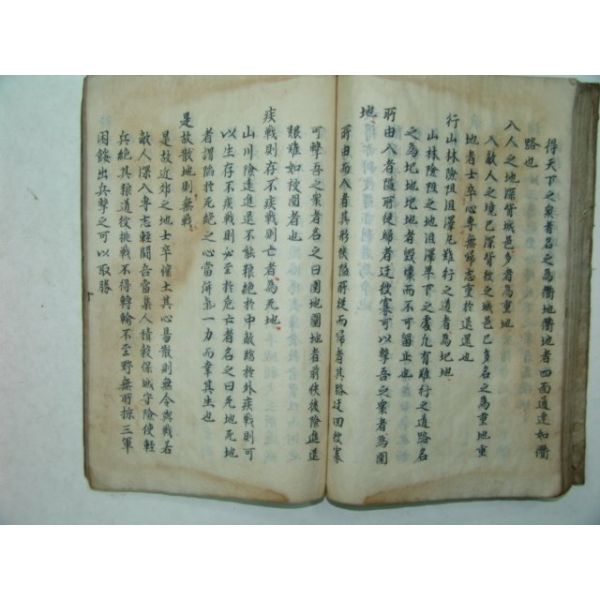 得天下之衆者名之爲衢地衢地者四面通達如衢
路也
入人之地深背城邑多者爲重地
入敵人之境已深背敵之城邑已多名之爲重地重
地者士卒心專無歸志重於退還也
行山林險阻沮澤凡難行之道者爲圮地
山林險阻之地沮澤卑下之處凡有難行之道路名
之爲圮地圮地者毀壞而不可留止也
所由入者隘所從歸者迂彼寡可以擊吾之衆者爲圍
地
所由而入者其形狹隘所從而歸者其路迂回彼寡
可擊吾之衆者名之曰圍地圍地者前狹後險進退
艱難如被圍者也
疾戰則存不疾戰則亡者爲死地
山川險進退不能粮絶於中敵臨於外疾戰則可
以生存不疾戰則必至於危亡者名之曰死地死地
者謂陷於死絶之心當併氣一力而奮其生也
是故散地則無戰
是故近郊之地士卒懷土其心易散則無令與戰若
敵人深入專志輕鬪吾當集人積穀保城守險使輕
兵絶其粮道彼挑戰不得轉輸不至野無所掠三軍
困餒出兵擊之可以取勝